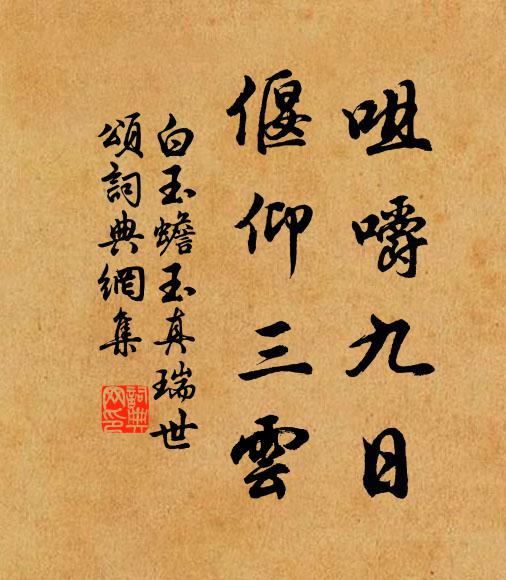 咀嚼九日
偃仰三雲
白玉蟾玉真瑞世
頌詞典網集
詞典
网印